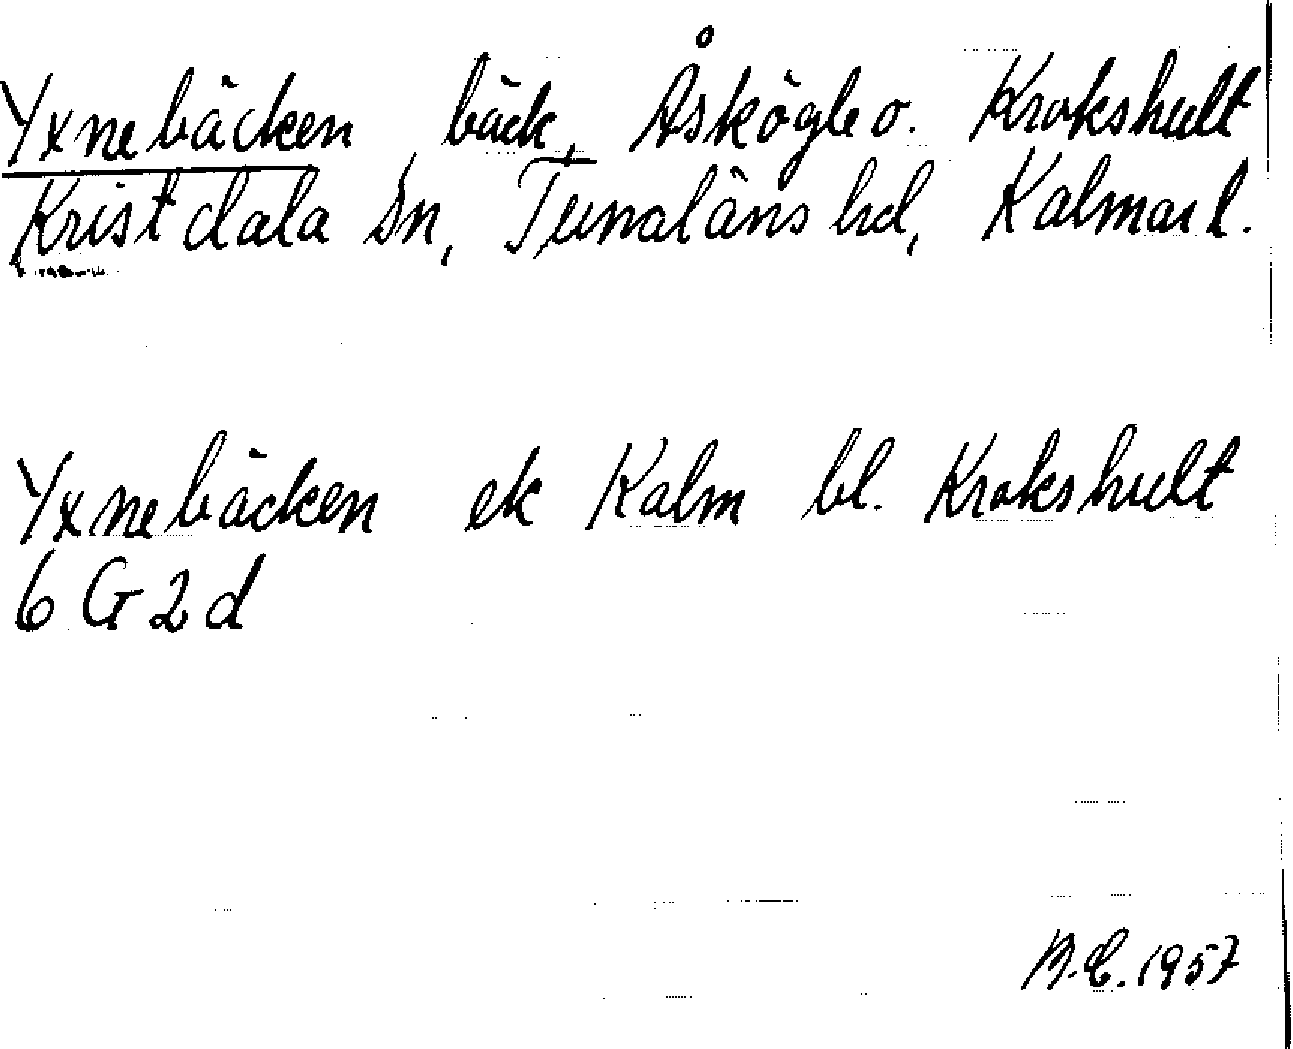 Yxnebäcken bäck, Åskögle o. Krokshult
Kristdala sn, Tunaläns hd, Kalmar l.
Yxnebäcken ek Kalm bl. Krokshult
6 G 2 d
B.E. 1957